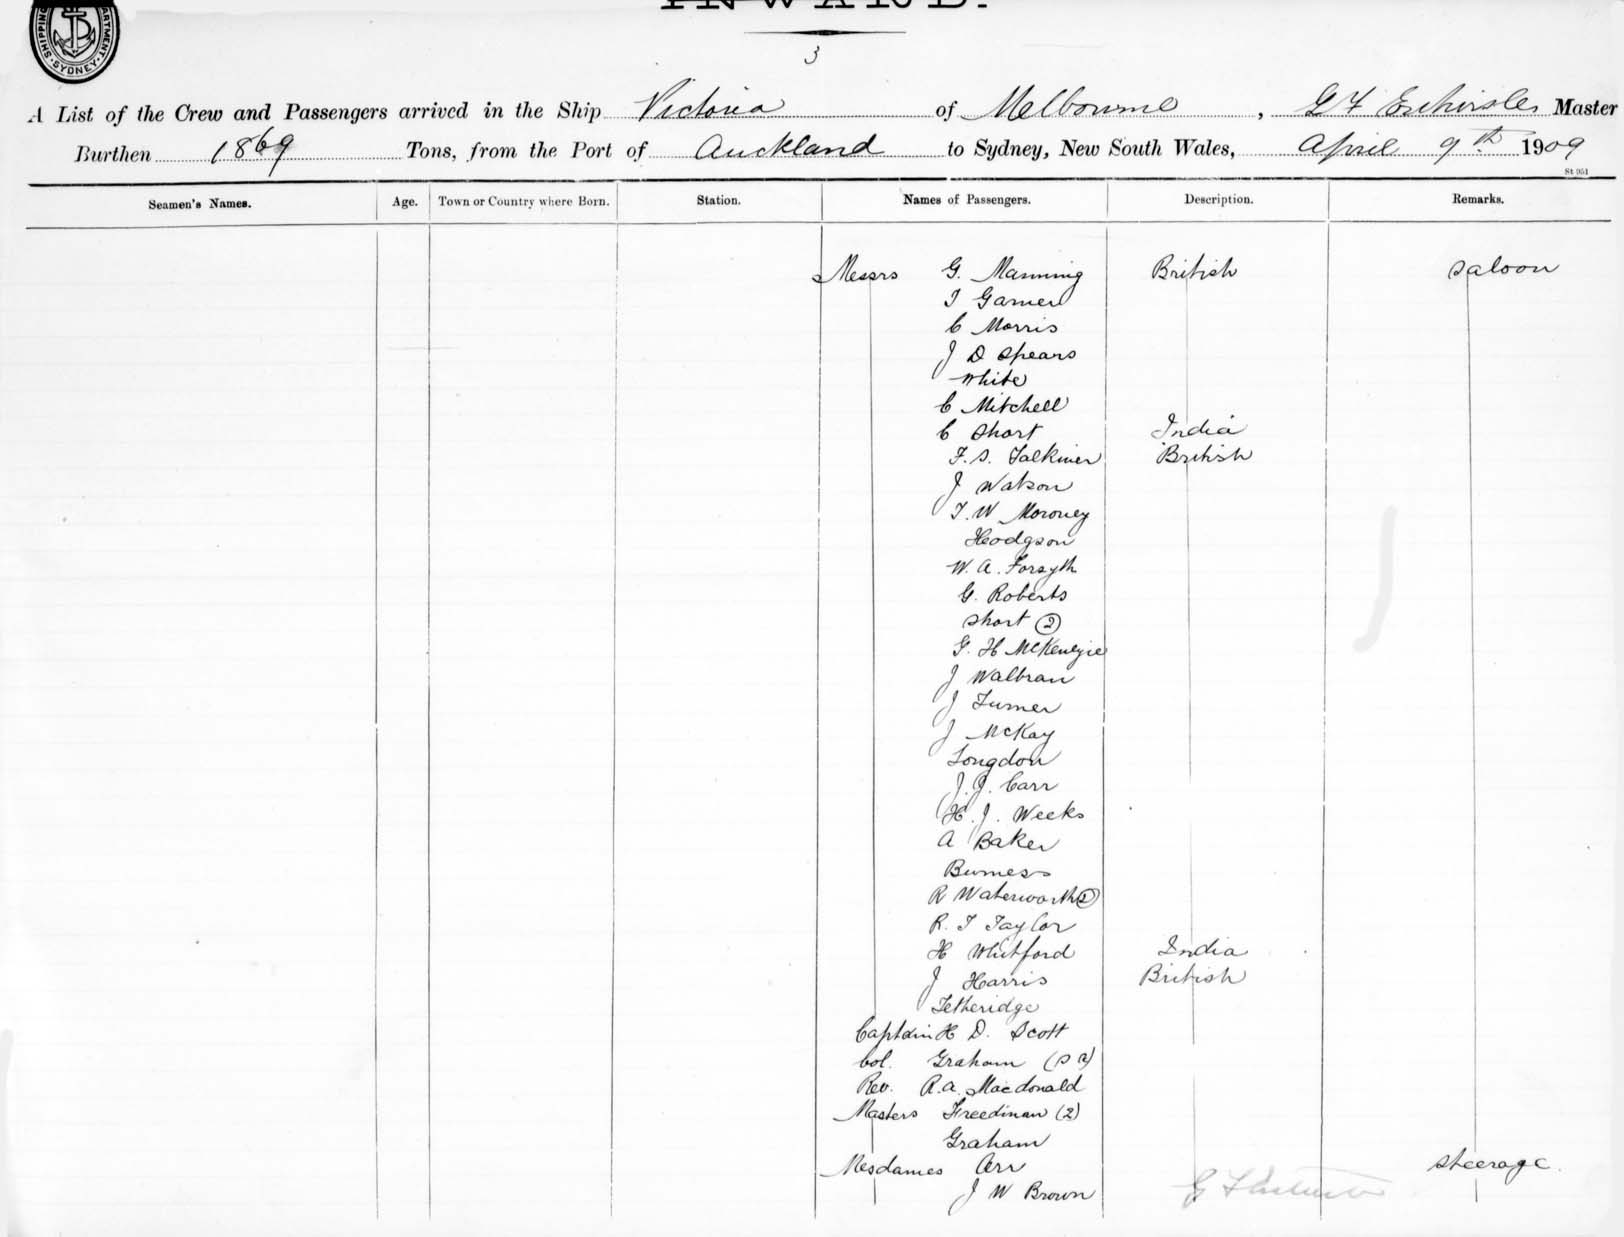 INWARD.
SHIPPING DEPARTMENT · SYDNEY ·
3
A List of the Crew and Passengers arrived in the Ship Victoria of Melbourne, G F Master
Burthen 1869 Tons, from the Port of Auckland to Sydney, New South Wales, April 9th 1909
St 951
Seamen's Names. Age. Town or Country where Born. Station. Names of Passengers. Description. Remarks.
Messrs G. Manning British Saloon
T Garner
C Morris
J D Spears
White
C Mitchell
C Short India
F. S. Falkiner British
J Watson
T. W Moroney
Hodgson
W. A. Forsyth
G. Roberts
Short (2)
G. H McKenzie
J Walbran
J Turner
J McKay
Longdon
J. J. Carr
H. J. Weeks
A Baker
Burness
R Waterworth (2)
R. T Taylor
H Whitford India
J Harris British
Tetheridge
Captain H D. Scott
Col. Graham
Rev. R. A. Macdonald
Masters Freedman (2)
Graham
Mesdames Orr Steerage.
J W Brown